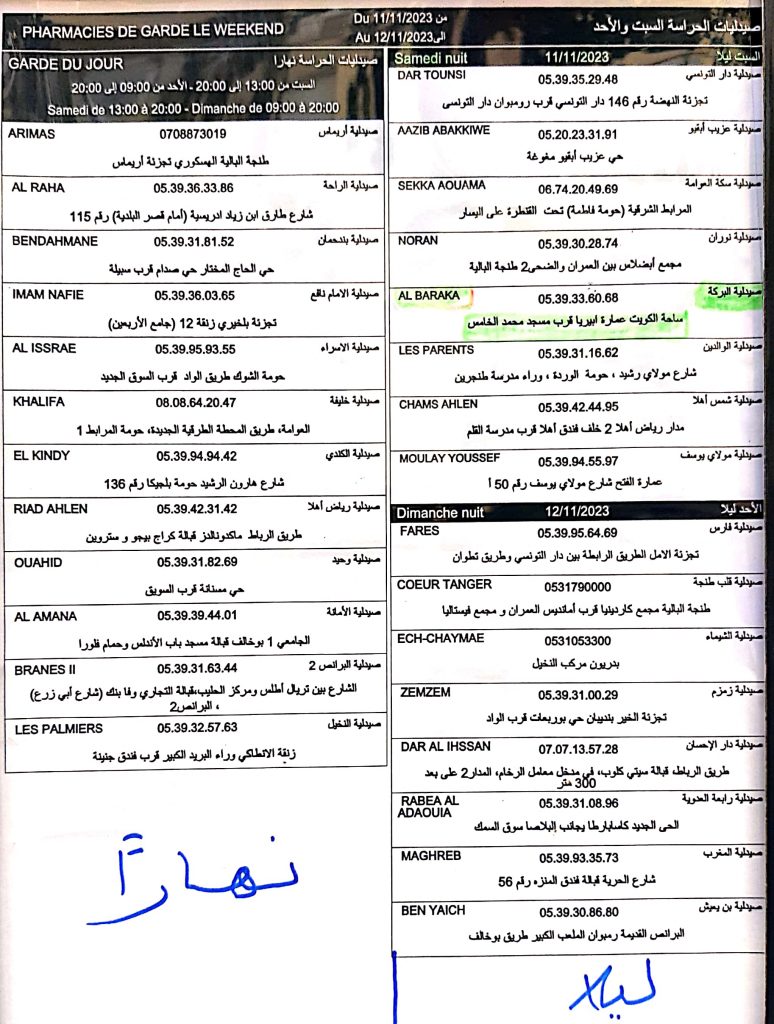 PHARMACIES DE GARDE LE WEEKEND
Du 11/11/2023 من
Au 12/11/2023 الى
صيدليات الحراسة السبت والأحد
GARDE DU JOUR صيدليات الحراسة نهارا
السبت من 13:00 إلى 20:00 - الأحد من 09:00 إلى 20:00
Samedi de 13:00 à 20:00 - Dimanche de 09:00 à 20:00
ARIMAS 0708873019 صيدلية أريماس
طنجة البالية الهسكوري تجزئة أريماس
AL RAHA 05.39.36.33.86 صيدلية الراحة
شارع طارق ابن زياد ادريسية (أمام قصر البلدية) رقم 115
BENDAHMANE 05.39.31.81.52 صيدلية بندحمان
حي الحاج المختار حي صدام قرب سبيلة
IMAM NAFIE 05.39.36.03.65 صيدلية الامام نافع
تجزئة بلخيري زنقة 12 (جامع الأربعين)
AL ISSRAE 05.39.95.93.55 صيدلية الاسراء
حومة الشوك طريق الواد قرب السوق الجديد
KHALIFA 08.08.64.20.47 صيدلية خليفة
العوامة، طريق المحطة الطرقية الجديدة، حومة المرابط 1
EL KINDY 05.39.94.94.42 صيدلية الكندي
شارع هارون الرشيد حومة بلجيكا رقم 136
RIAD AHLEN 05.39.42.31.42 صيدلية رياض أهلا
طريق الرباط ماكدونالدز قبالة كراج بيجو و ستروين
OUAHID 05.39.31.82.69 صيدلية وحيد
حي مسنانة قرب السويق
AL AMANA 05.39.39.44.01 صيدلية الأمانة
الجامعي 1 بوخالف قبالة مسجد باب الأندلس وحمام فلورا
BRANES II 05.39.31.63.44 صيدلية البرانص 2
الشارع بين تريال أطلس ومركز الحليب،قبالة التجاري وفا بنك (شارع أبي زرع)
، البرانص2
LES PALMIERS 05.39.32.57.63 صيدلية النخيل
زنقة الانطاكي وراء البريد الكبير قرب فندق جنينة
نهارًا
Samedi nuit 11/11/2023 السبت ليلا
DAR TOUNSI 05.39.35.29.48 صيدلية دار التونسي
تجزئة النهضة رقم 146 دار التونسي قرب رومبوان دار التونسى
AAZIB ABAKKIWE 05.20.23.31.91 صيدلية عزيب أبقيو
حي عزيب أبقيو مغوغة
SEKKA AOUAMA 06.74.20.49.69 صيدلية سكة العوامة
المرابط الشرقية (حومة فاطمة) تحت القنطرة على اليسار
NORAN 05.39.30.28.74 صيدلية نوران
مجمع أبضلاس بين العمران والضحى2 طنجة البالية
AL BARAKA 05.39.33.60.68 صيدلية البركة
ساحة الكويت عمارة ابيريا قرب مسجد محمد الخامس
LES PARENTS 05.39.31.16.62 صيدلية الوالدين
شارع مولاي رشيد ، حومة الوردة ، وراء مدرسة طنجرين
CHAMS AHLEN 05.39.42.44.95 صيدلية شمس أهلا
مدار رياض أهلا 2 خلف فندق أهلا قرب مدرسة القلم
MOULAY YOUSSEF 05.39.94.55.97 صيدلية مولاي يوسف
عمارة الفتح شارع مولاي يوسف رقم 50 أ
Dimanche nuit 12/11/2023 الأحد ليلا
FARES 05.39.95.64.69 صيدلية فارس
تجزئة الامل الطريق الرابطة بين دار التونسي وطريق تطوان
COEUR TANGER 0531790000 صيدلية قلب طنجة
طنجة البالية مجمع كاردينيا قرب أمانديس العمران و مجمع فيستاليا
ECH-CHAYMAE 0531053300 صيدلية الشيماء
بدريون مركب النخيل
ZEMZEM 05.39.31.00.29 صيدلية زمزم
تجزئة الخير بنديبان حي بوربعات قرب الواد
DAR AL IHSSAN 07.07.13.57.28 صيدلية دار الإحسان
طريق الرباط، قبالة سيتي كلوب، في مدخل معامل الرخام، المدار2 على بعد
300 متر
RABEA AL ADAOUIA 05.39.31.08.96 صيدلية رابعة العدوية
الحى الجديد كاسابارطا بجانب إلبلاصا سوق السمك
MAGHREB 05.39.93.35.73 صيدلية المغرب
شارع الحرية قبالة فندق المنزه رقم 56
BEN YAICH 05.39.30.86.80 صيدلية بن يعيش
البرانص القديمة رمبوان الملعب الكبير طريق بوخالف
ليلا